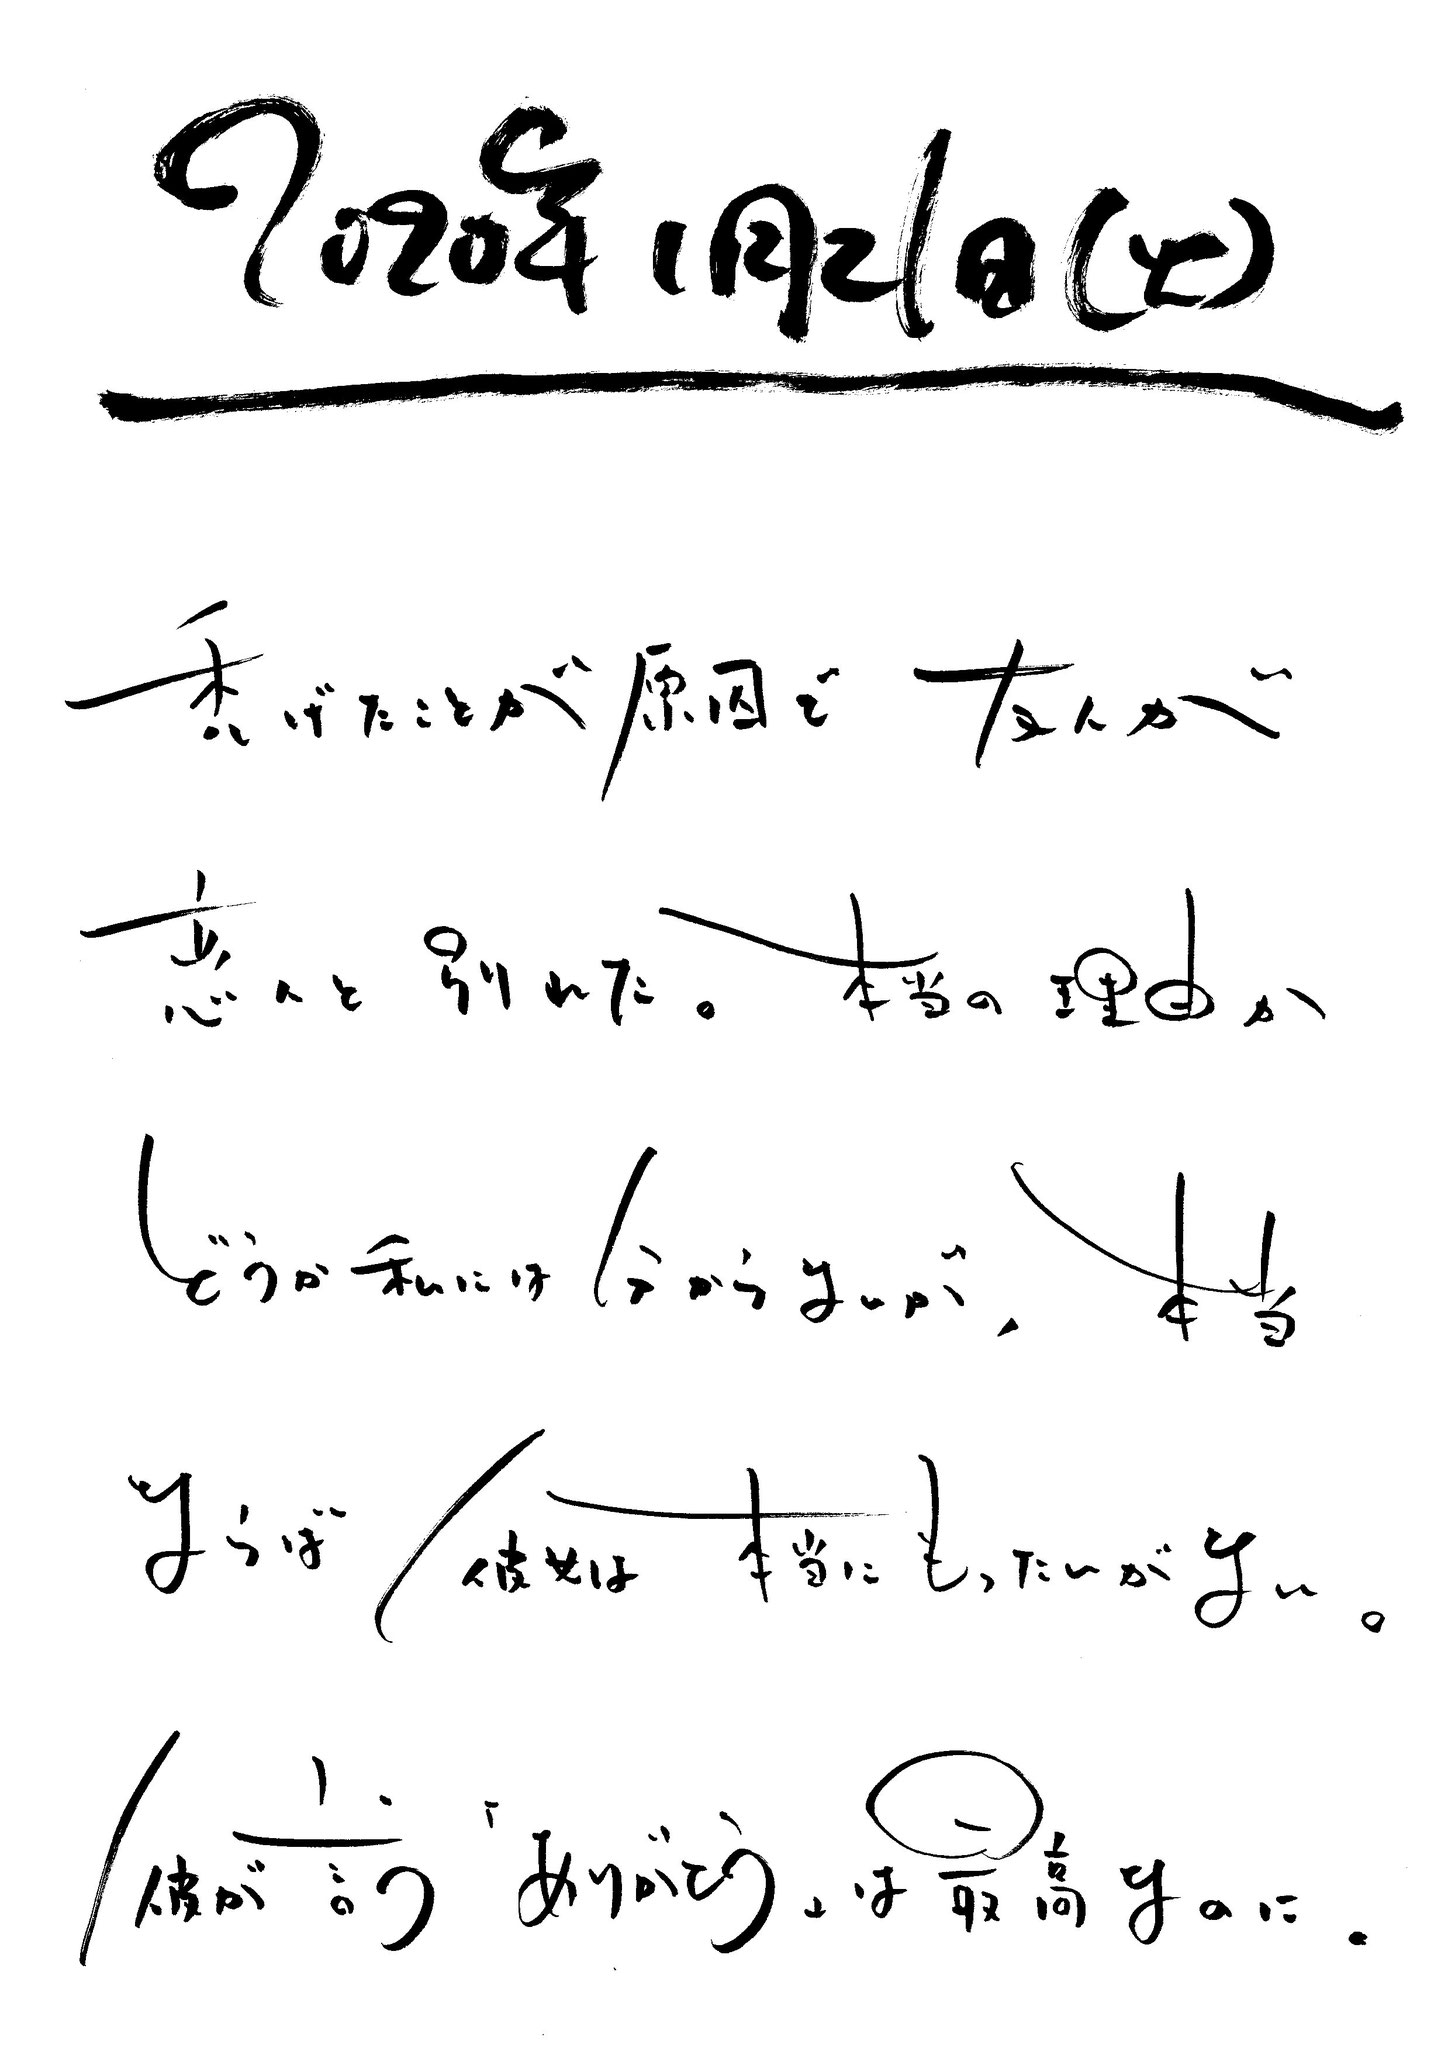 2020年1月21日(土)
禿げたことが原因で 友人が
恋人と別れた。本当の理由か
どうか私には分からないが、本当
ならば彼女は本当にもったいがない。
彼が言う「ありがとう」は最高なのに。